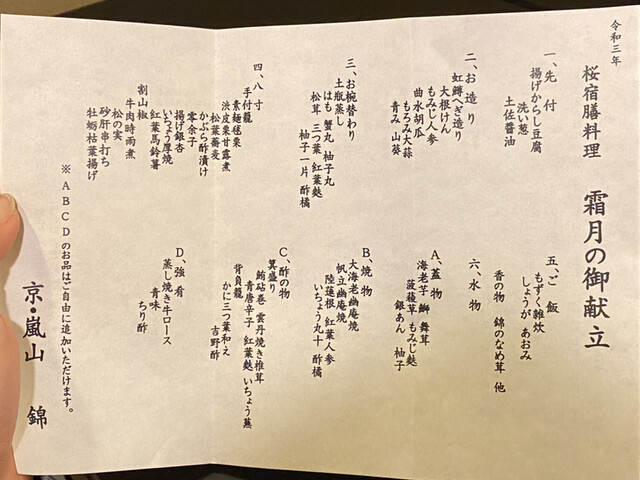 令和三年
桜宿膳料理　霜月の御献立
一、先付
揚げからし豆腐
洗い葱
土佐醤油
二、お造り
虹鱒へぎ造り
大根けん
もみじ人参
曲水胡瓜
もろみ大蒜
青み 山葵
三、お椀替わり
土瓶蒸し
はも 蟹丸 柚子丸
松茸 三つ葉 紅葉麩
柚子一片 酢橘
四、八寸
手付籠
素麺毬栗
渋皮栗甘露煮
松葉蕎麦
かぶら酢漬け
零余子
揚げ銀杏
いちょう厚焼
紅葉馬鈴薯
割山椒
牛肉時雨煮
松の実
砂肝串打ち
牡蛎枯葉揚げ
五、ご飯
もずく雑炊
しょうが あおみ
香の物 錦のなめ茸 他
六、水物
A、蓋物
海老芋 鰤 舞茸
菠薐草 もみじ麩
銀あん 柚子
B、焼物
大海老幽庵焼
帆立幽庵焼
陸蓮根 紅葉人参
いちょう丸十 酢橘
C、酢の物
箕盛り
鮪砧巻 雲丹焼き椎茸
青唐辛子 紅葉麩 いちょう蕪
背負籠
かに三つ葉和え
吉野酢
D、強肴
蒸し焼き牛ロース
青味
ちり酢
※ＡＢＣＤのお品はご自由に追加いただけます。
京・嵐山　錦